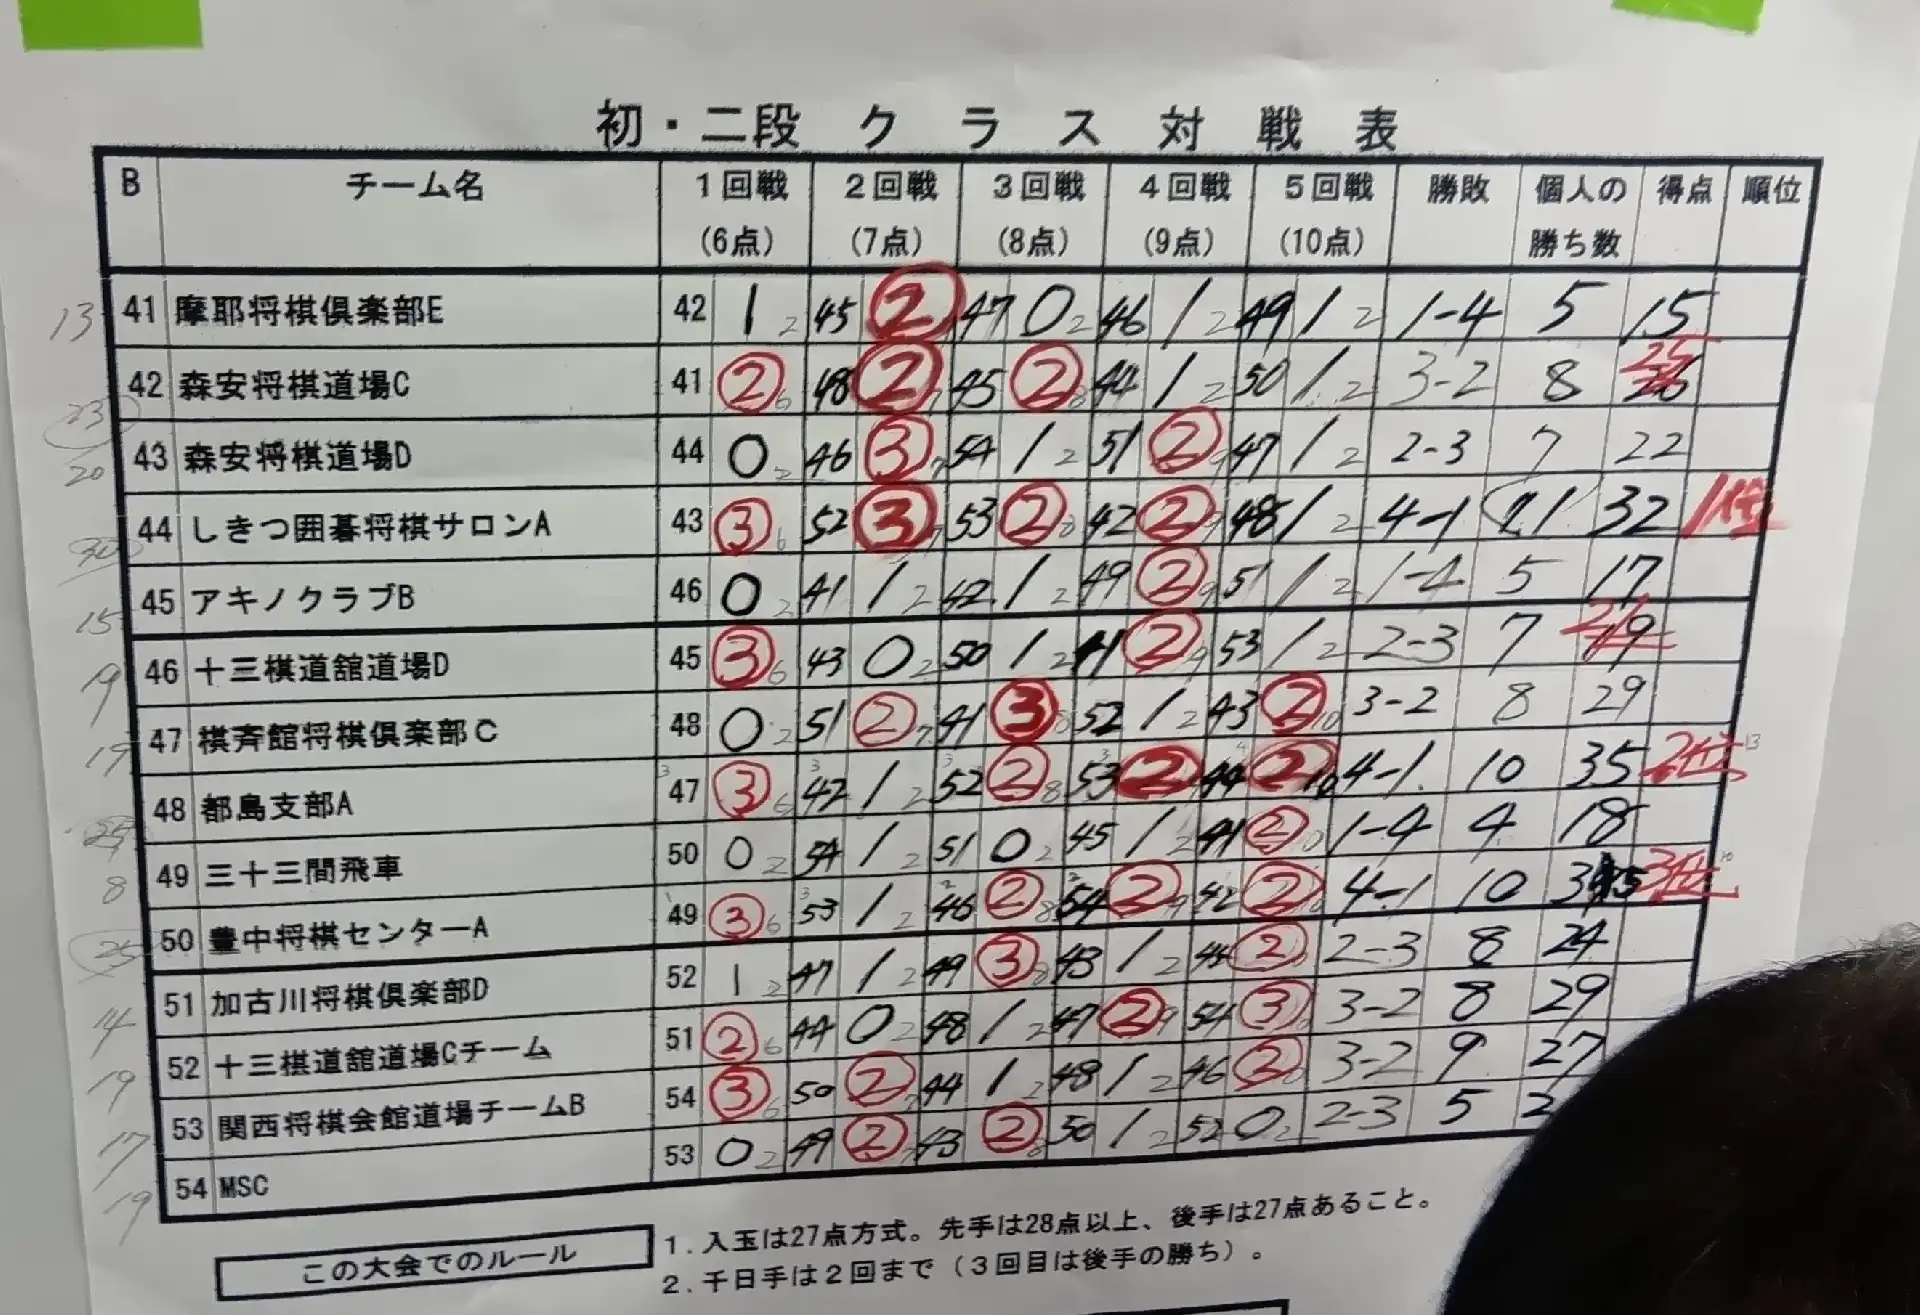 初・二段 クラス対戦表
B チーム名 1回戦 2回戦 3回戦 4回戦 5回戦 勝敗 個人の 得点 順位
(6点) (7点) (8点) (9点) (10点) 勝ち数
13 41 摩耶将棋倶楽部E 42 1 2 45 2 47 0 2 46 1 2 49 1 2 1-4 5 15
23 42 森安将棋道場C 41 2 6 48 2 7 45 2 8 44 1 2 50 1 2 3-2 8 25
20 43 森安将棋道場D 44 0 2 46 3 7 54 1 2 51 2 9 47 1 2 2-3 7 22
30 44 しきつ囲碁将棋サロンA 43 3 6 52 3 7 53 2 8 42 2 9 48 1 2 4-1 11 32 1位
15 45 アキノクラブB 46 0 2 41 1 2 42 1 2 49 2 9 51 1 2 1-4 5 17
19 46 十三棋道舘道場D 45 3 6 43 0 2 50 1 2 41 2 9 53 1 2 2-3 7 21
19 47 棋斉館将棋倶楽部C 48 0 2 51 2 7 41 3 8 52 1 2 43 2 10 3-2 8 29
48 都島支部A 47 3 6 42 1 2 52 2 8 53 2 44 2 10 4-1 10 35 2位 13
8 49 三十三間飛車 50 0 2 54 1 2 51 0 2 45 1 2 41 2 10 1-4 4 18
25 50 豊中将棋センターA 49 3 6 53 1 2 46 2 8 54 2 9 42 2 10 4-1 10 35 3位 10
14 51 加古川将棋倶楽部D 52 1 2 47 1 2 49 3 8 43 1 2 45 2 2-3 8 24
19 52 十三棋道舘道場Cチーム 51 2 6 44 0 2 48 1 2 47 2 9 54 3 3-2 8 29
17 53 関西将棋会館道場チームB 54 3 6 50 2 7 44 1 2 48 1 2 46 2 3-2 9 27
19 54 MSC 53 0 2 49 2 7 43 2 8 50 1 2 52 0 2 2-3 5 2
この大会でのルール
1. 入玉は27点方式。先手は28点以上、後手は27点あること。
2. 千日手は2回まで（3回目は後手の勝ち）。